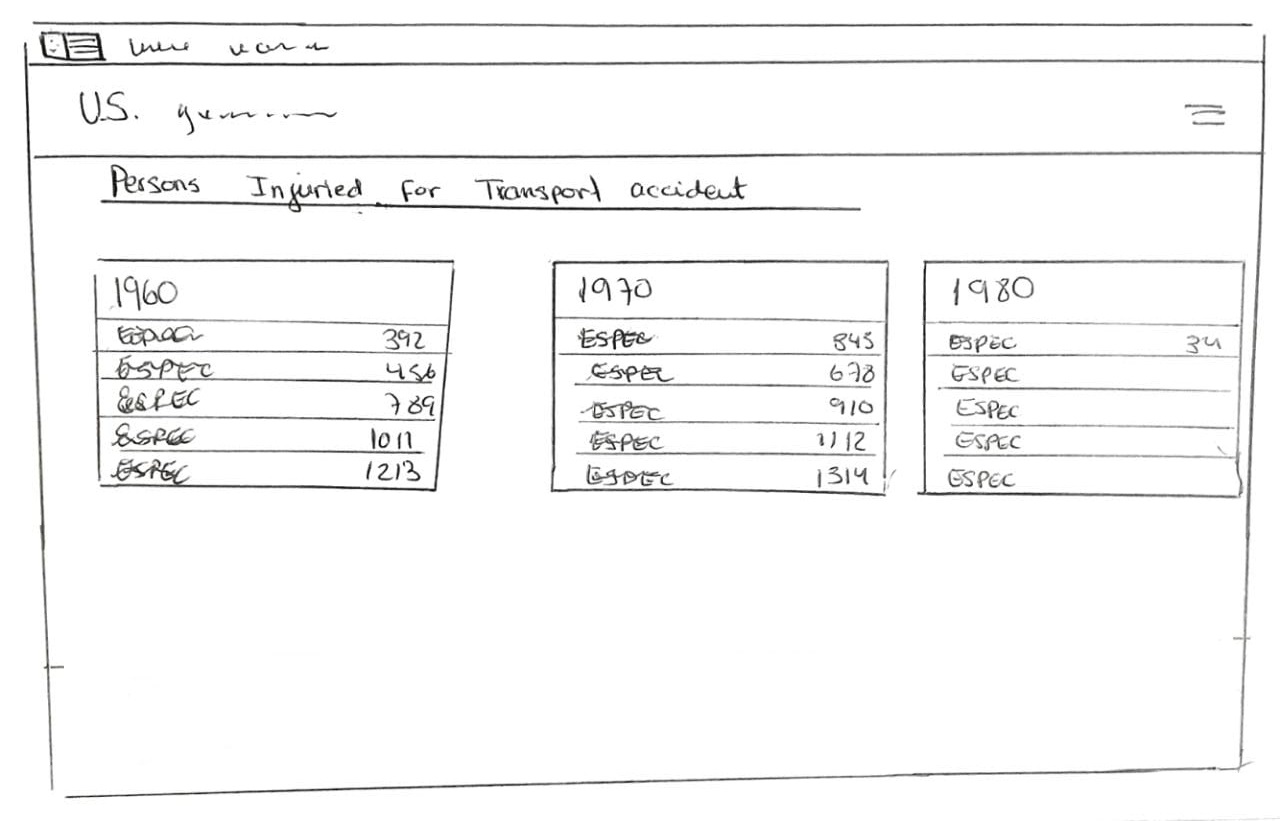 U.S.
Persons Injuried for Transport accident
1960
392
ESPEC 456
ESPEC 789
ESPEC 1011
ESPEC 1213
1970
ESPEC 845
ESPEC 678
ESPEC 910
ESPEC 1112
ESPEC 1314
1980
ESPEC 34
ESPEC
ESPEC
ESPEC
ESPEC